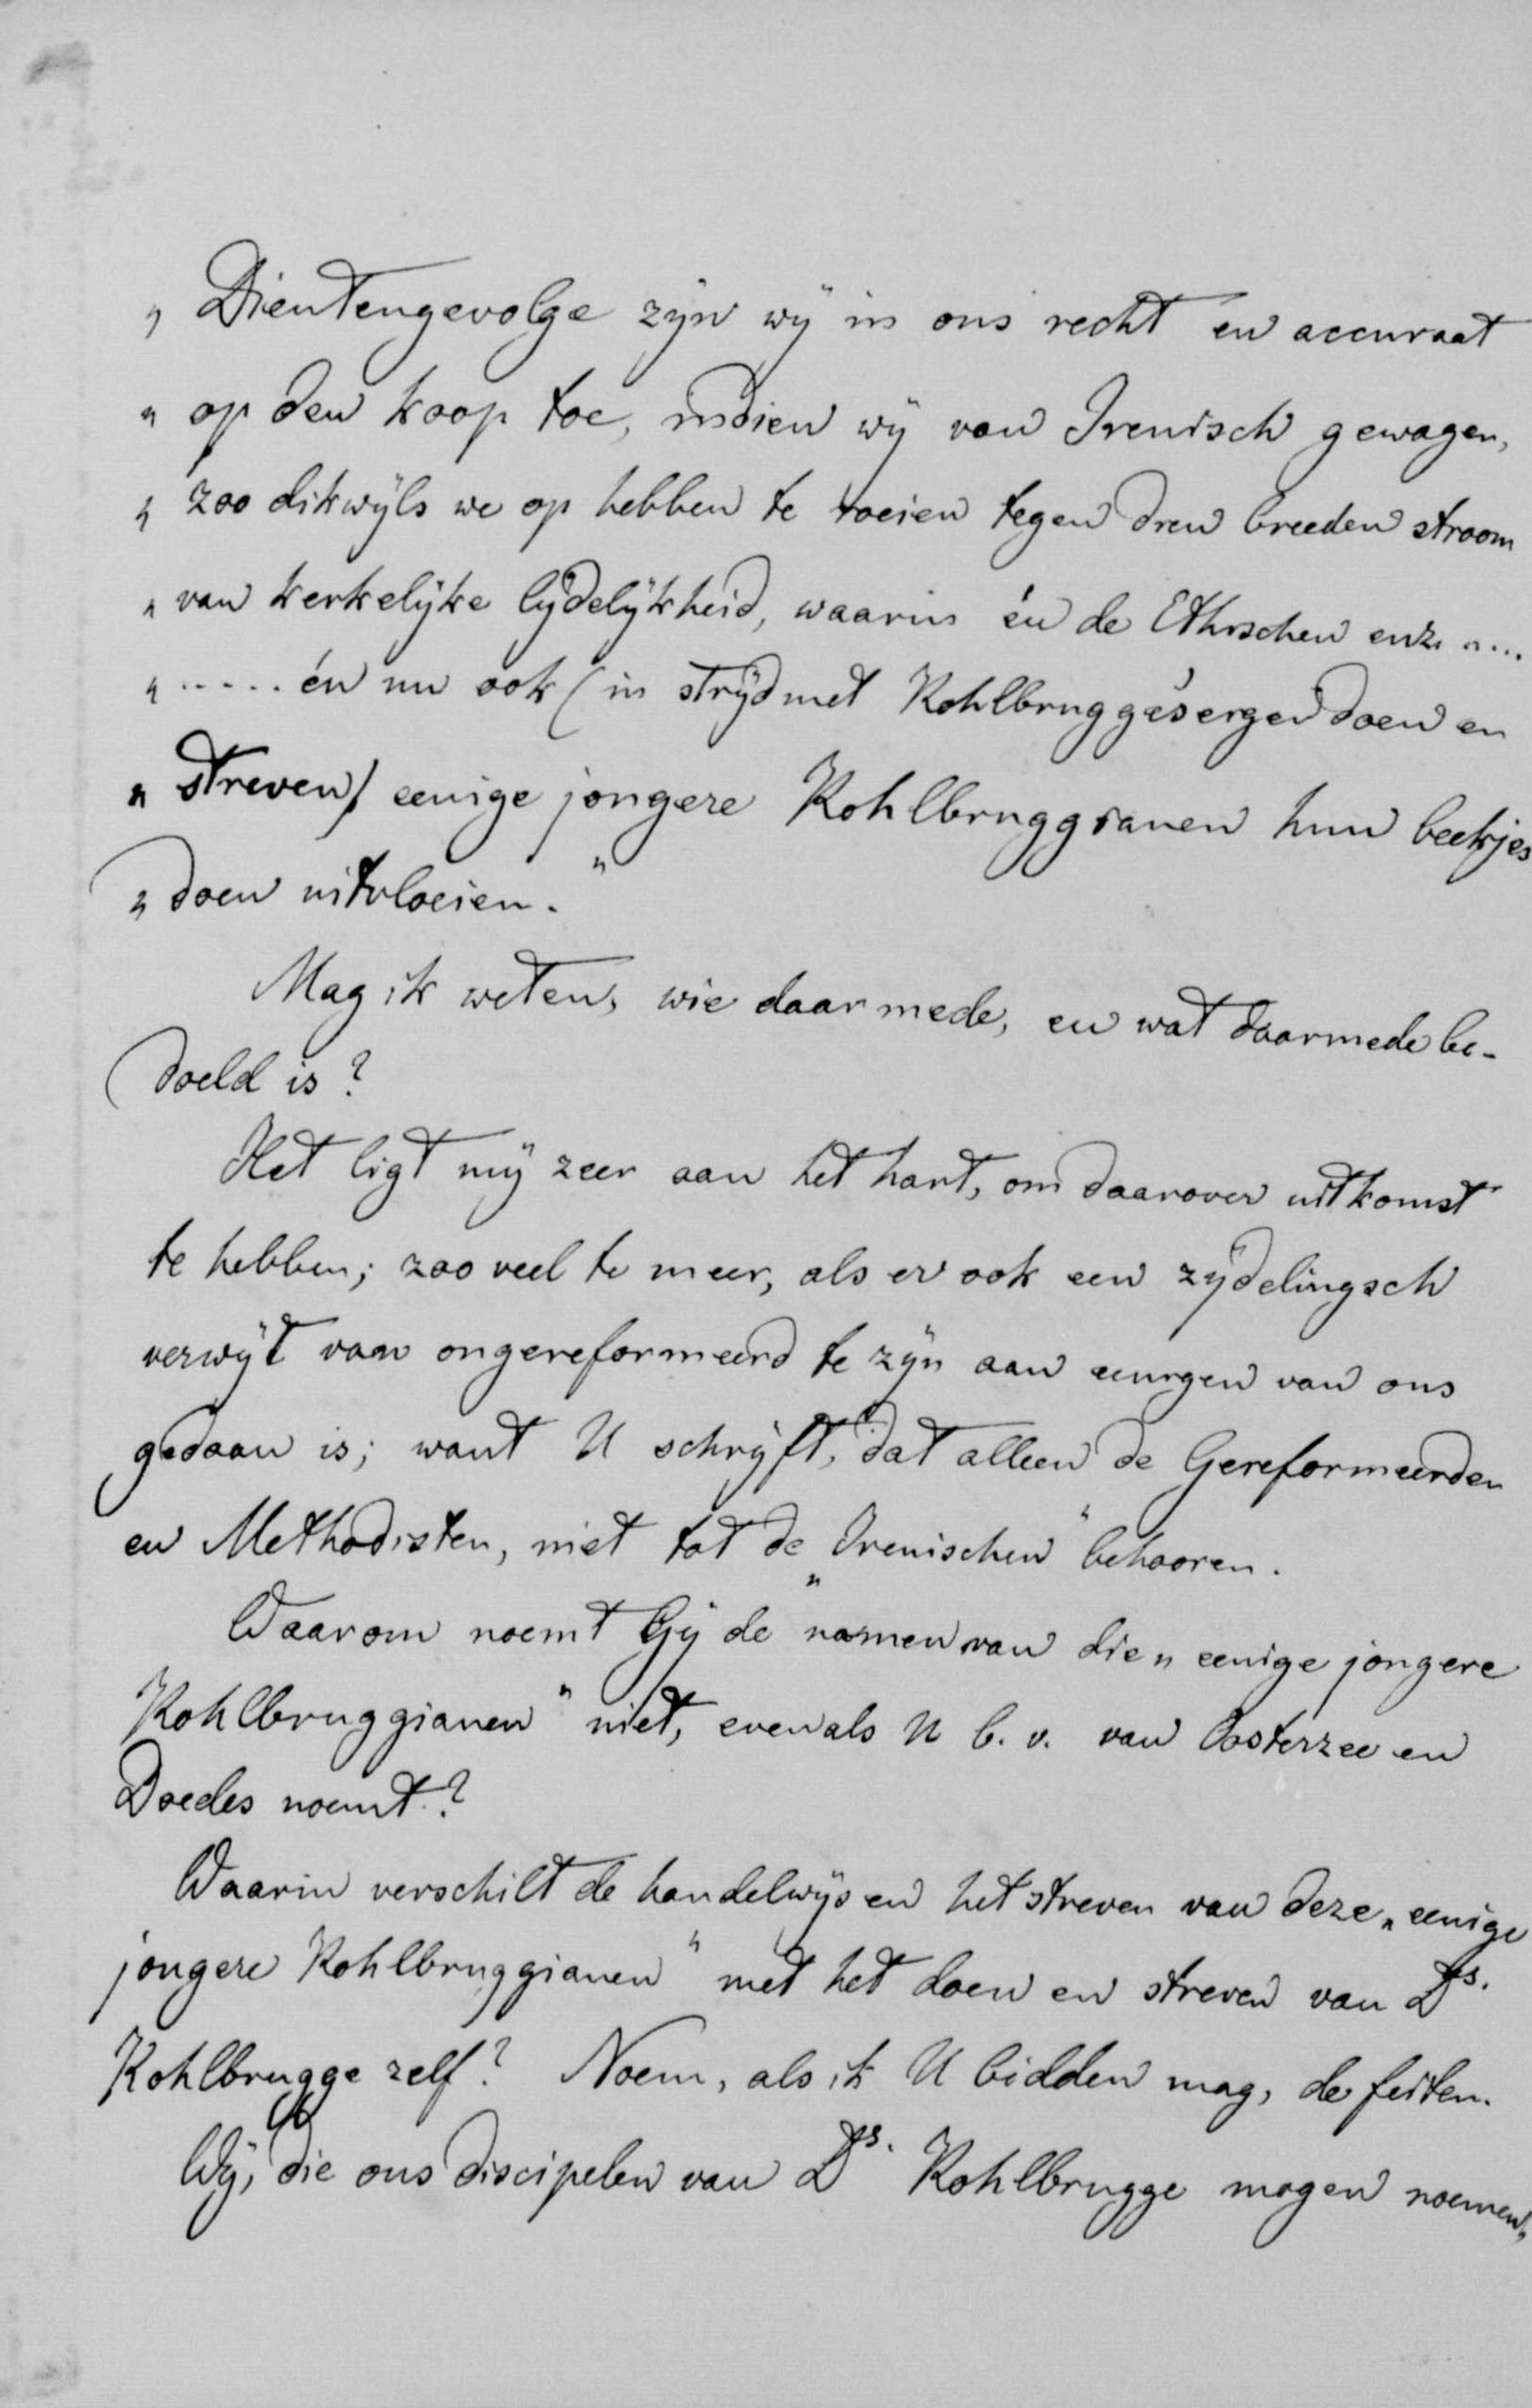 „ Dientengevolge zijn wij in ons recht en accuraat
„ op den koop toe, indien wij van Irenisch gewagen,
„ zoo dikwijls we op hebben te roeien tegen dien breeden stroom
„ van kerkelijke lijdelijkheid, waarin én de Ethischen enz. ....
„ ..... én nu ook (in strijd met Kohlbrugge's eigen doen en
„ streven) eenige jongere Kohlbruggianen hun beekjes
„ doen uitvloeien."
Mag ik weten, wie daarmede, en wat daarmede be-
doeld is?
Het ligt mij zeer aan het hart, om daarover uitkomst
te hebben; zoo veel te meer, als er ook een zijdelingsch
verwijt van ongereformeerd te zijn aan eenigen van ons
gedaan is; want U schrijft, dat alleen de Gereformeerden
en Methodisten, niet tot de „Irenischen" behooren.
Waarom noemt Gij de namen van die „eenige jongere
Kohlbruggianen" niet, evenals U b. v. van Oosterzee en
Doedes noemt?
Waarin verschilt de handelwijs en het streven van deze „eenige
jongere Kohlbruggianen" met het doen en streven van Ds.
Kohlbrugge zelf? Noem, als ik U bidden mag, de feiten.
Wij, die ons discipelen van Ds. Kohlbrugge mogen noemen,